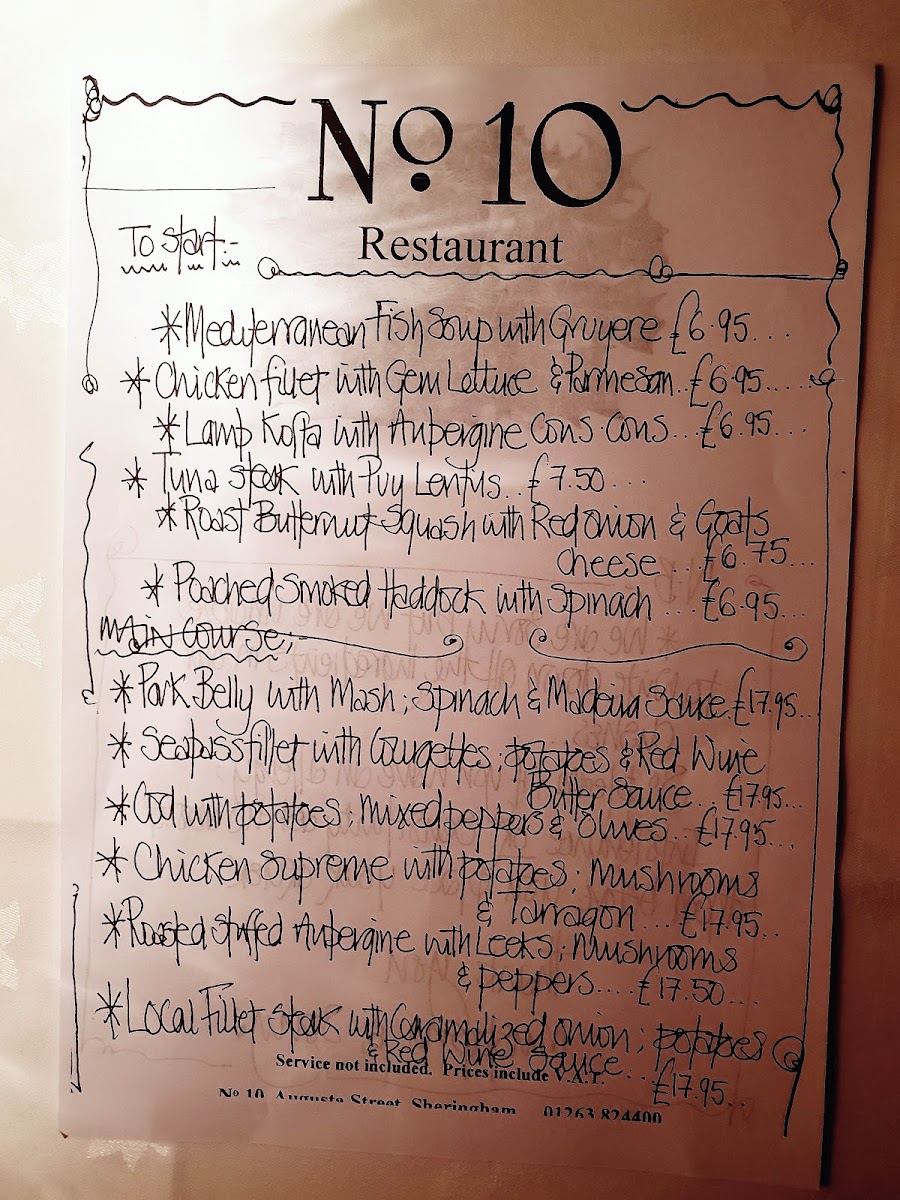 No 10
Restaurant
To start:-
*Mediterranean Fish Soup with Gruyere £6.95...
* Chicken fillet with Gem Lettuce & Parmesan..£6.95.....
*Lamb Kofta with Aubergine Cous-Cous...£6.95...
* Tuna steak with Puy Lentils..£7.50...
*Roast Butternut Squash with Red onion & Goats
cheese...£6.75...
* Poached Smoked Haddock with Spinach ....£6.95...
Main Course;
*Pork Belly with Mash; Spinach & Madeira Sauce.£17.95..
* Seabass fillet with Courgettes; potatoes & Red Wine
Butter Sauce...£17.95...
*Cod with potatoes; mixed peppers & Olives..£17.95...
* Chicken supreme with potatoes; Mushrooms
& Tarragon...£17.95..
*Roasted Stuffed Aubergine with Leeks; Mushrooms
& peppers....£17.50....
*Local Fillet steak with Caramalized onion; potatoes
& Red Wine Sauce...£17.95..
Service not included. Prices include V.A.T.
No 10 Augusta Street Sheringham 01263 824400